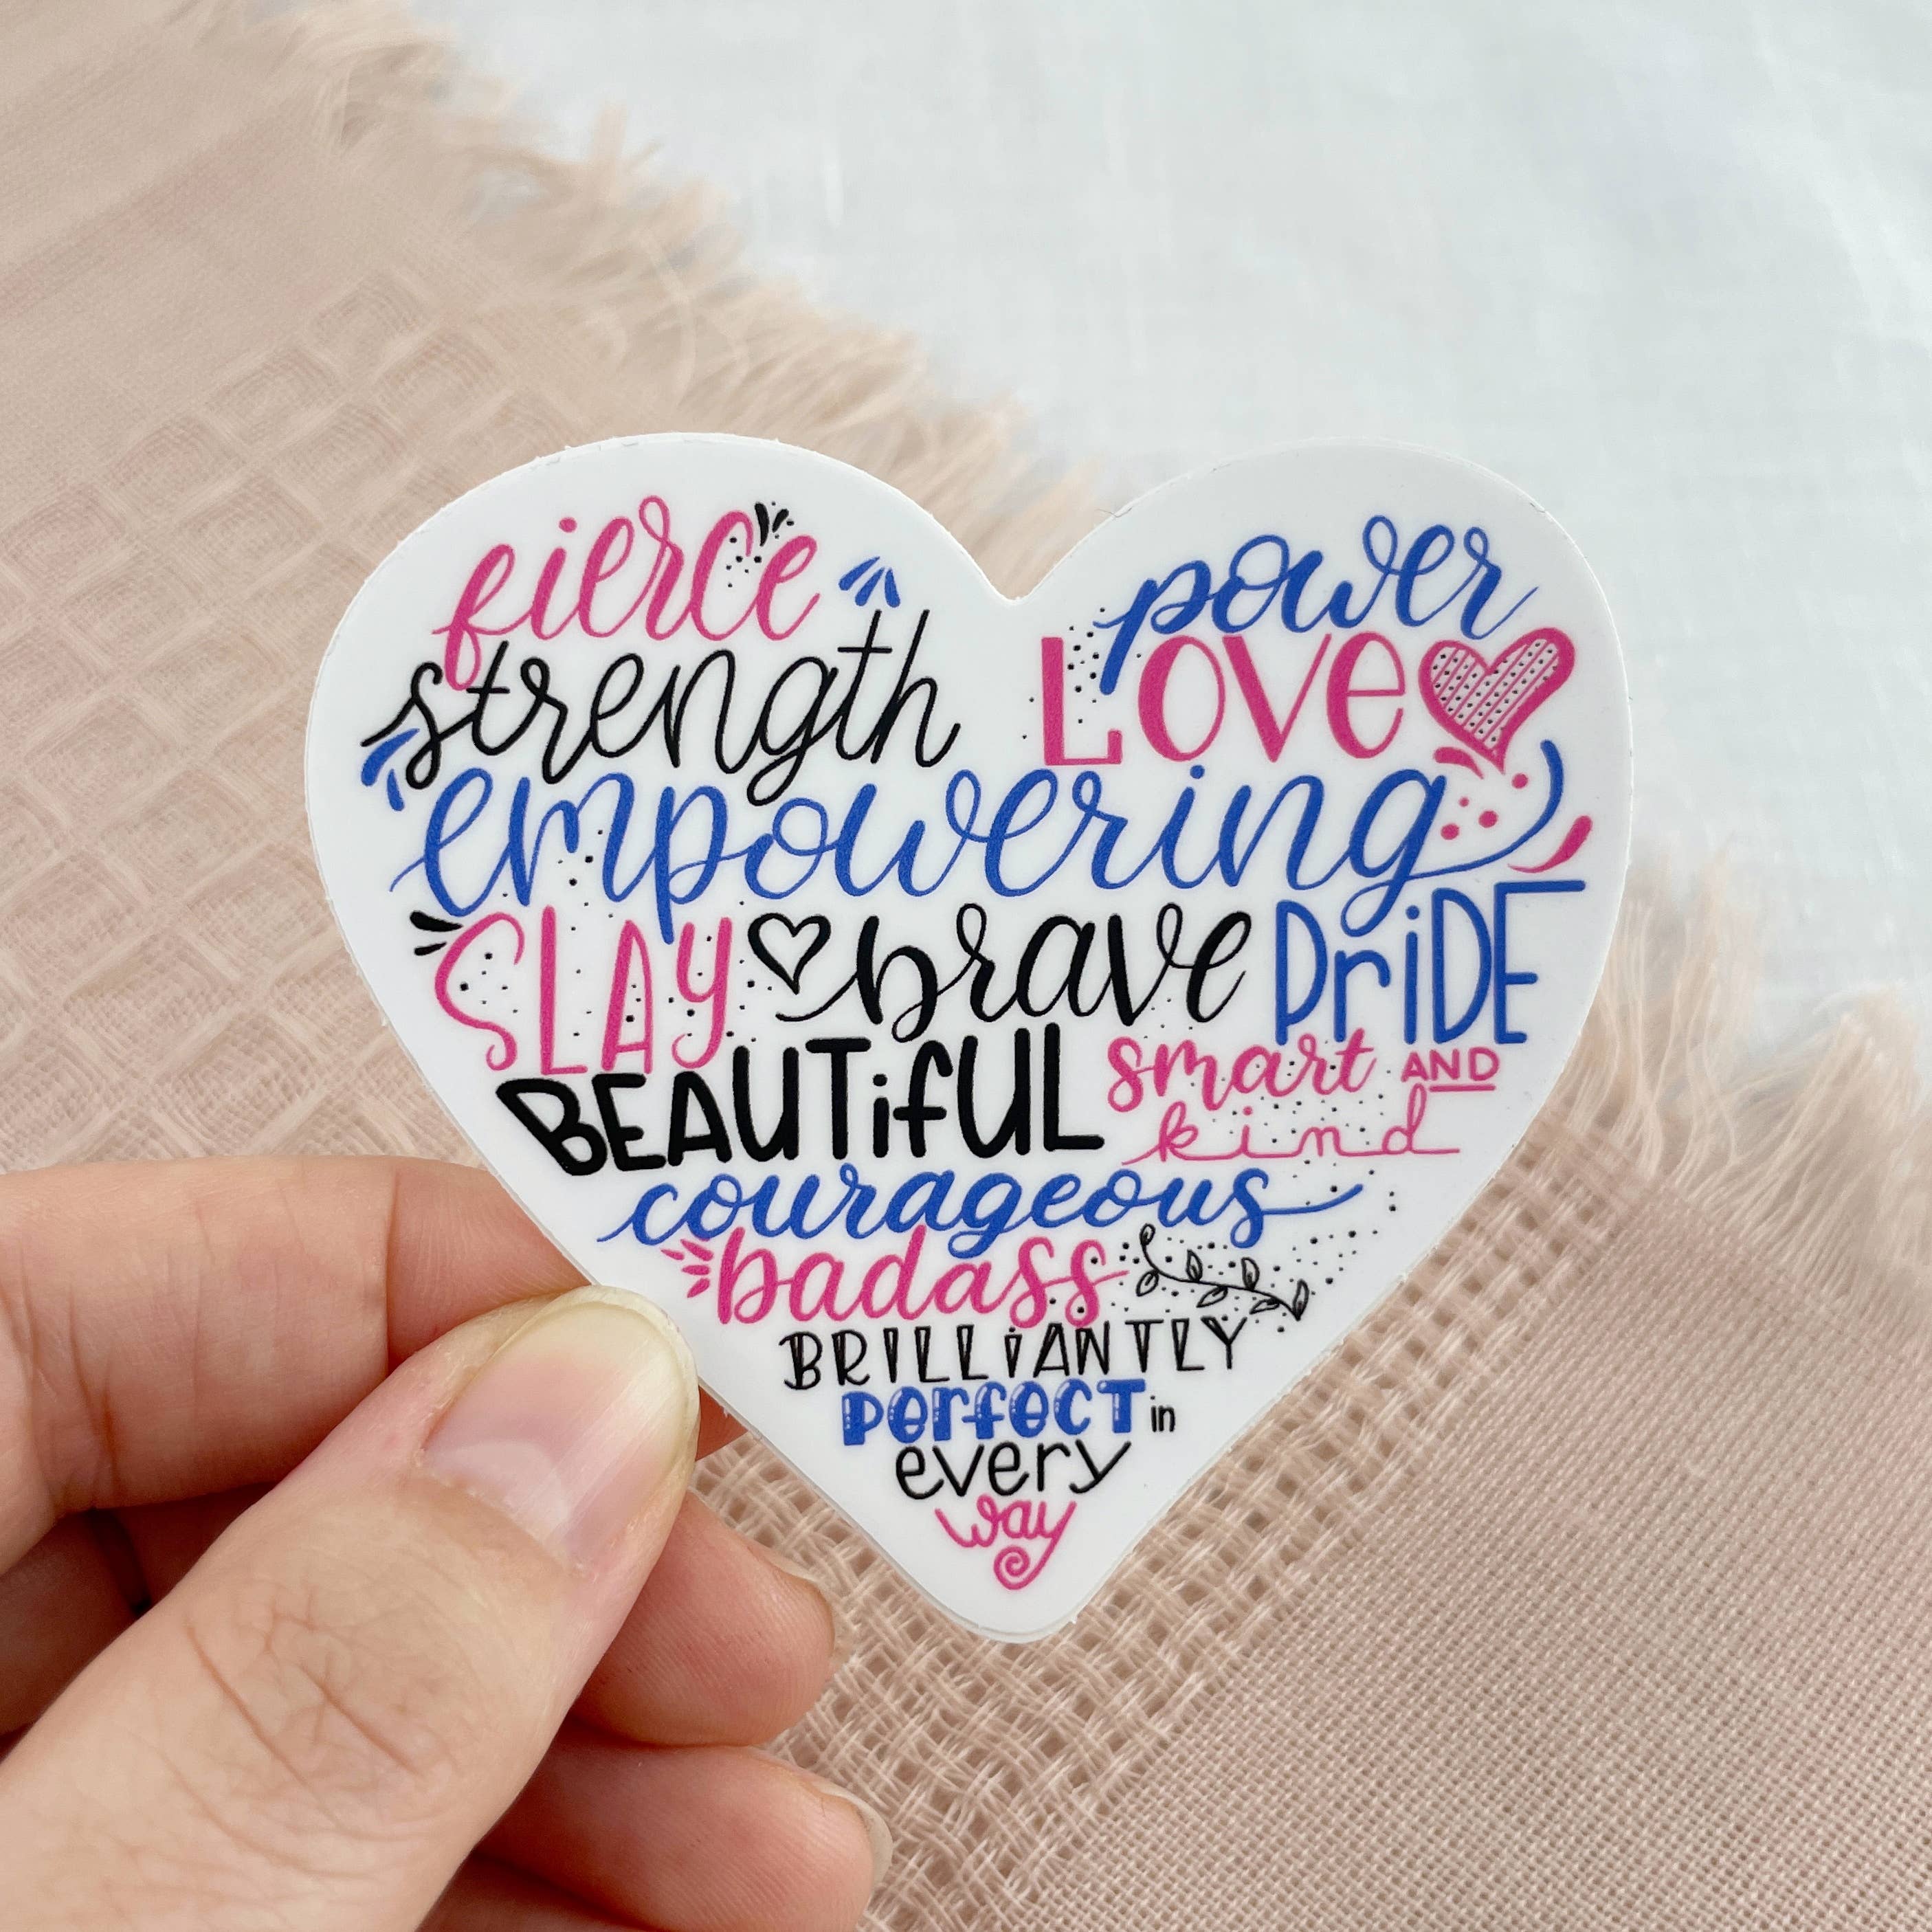 fierce
power
strength
LOVe
empowering
SLAY brave PriDE
BEAUTifUL smart AND
kind
courageous
badass
BRILLiANTLY
PerfeCT in
every
way